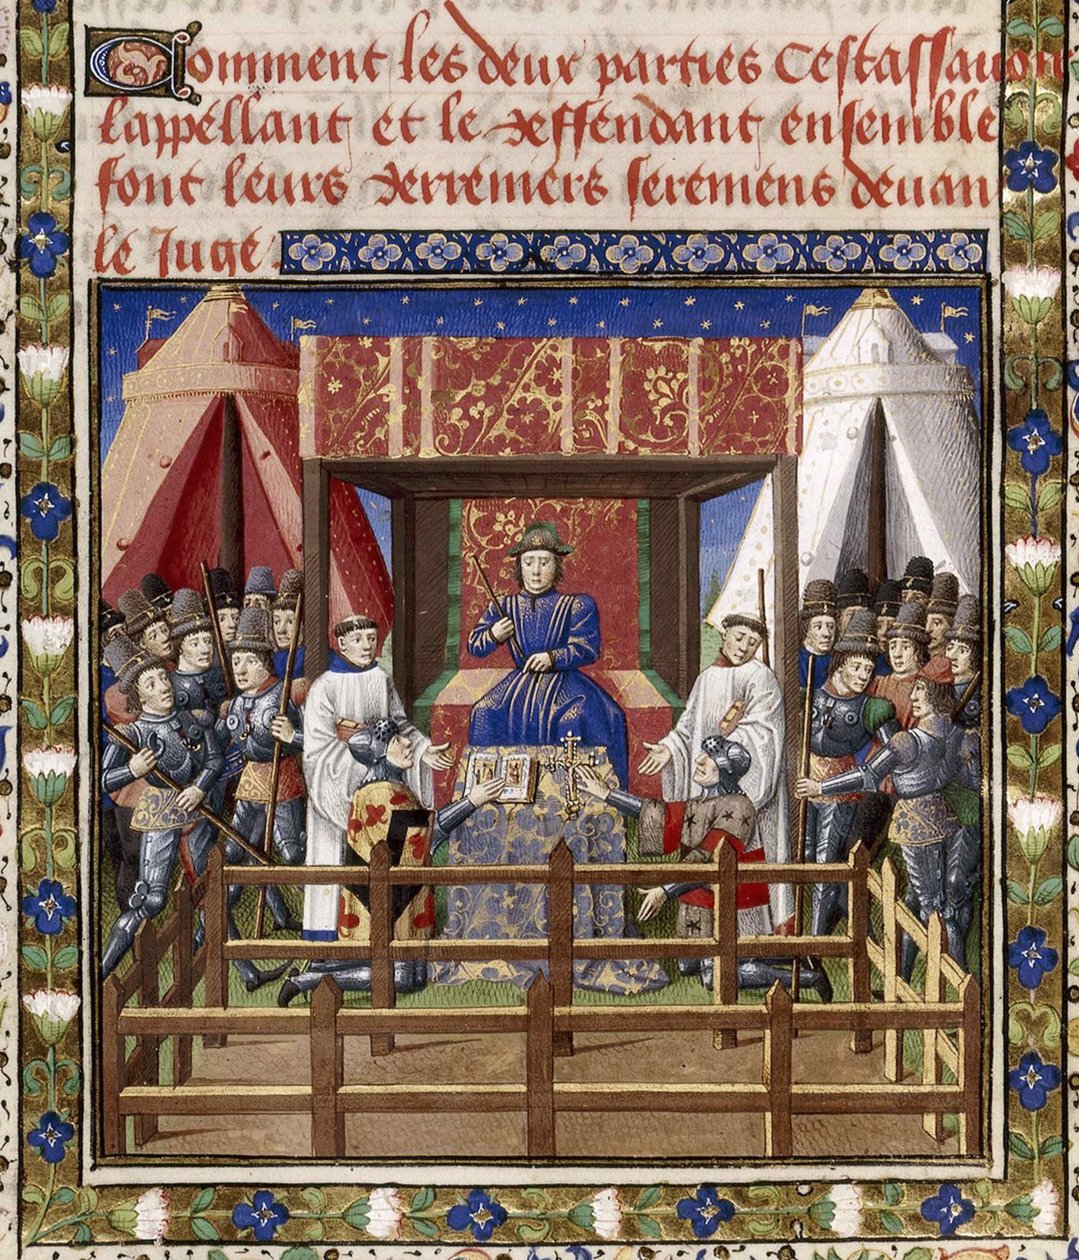 Comment les deux parties Cest assauoir
lappellant et le deffendant ensemble
font leurs derreniers seremens deuant
le Juge